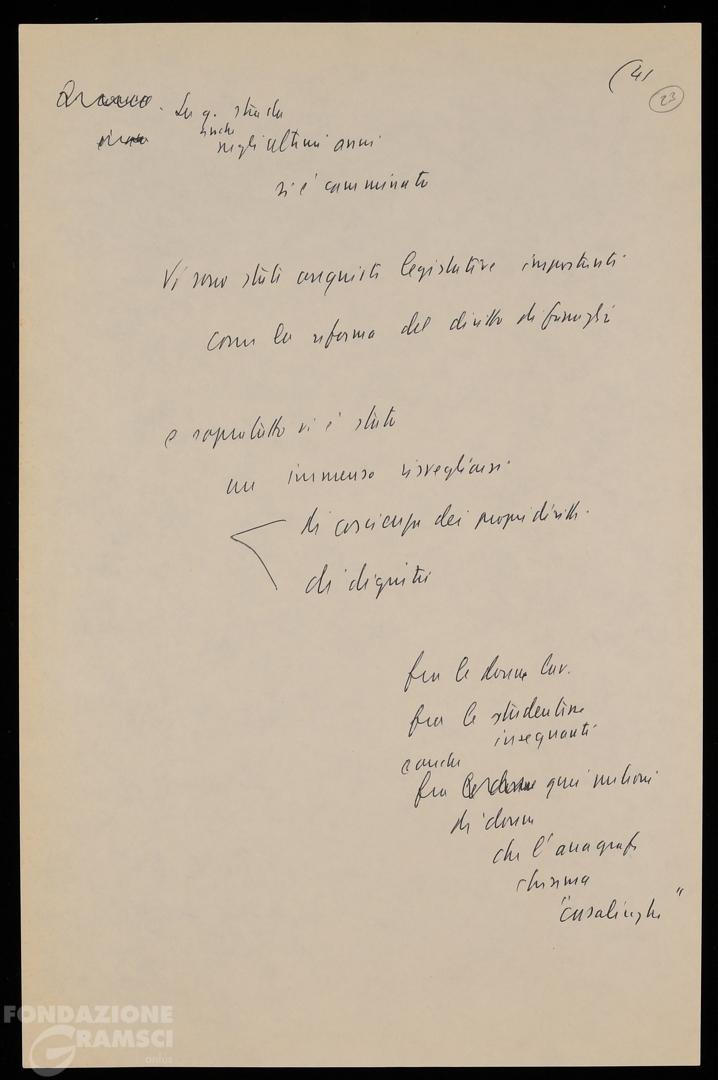 (41
23
Su q. strada
anche
negli ultimi anni
si è camminato
Vi sono stati conquiste legislative importanti
come la riforma del diritto di famiglia
e sopratutto vi è stato
un immenso risvegliarsi
di coscienza dei propri diritti
di dignità
fra le donne lav.
fra le studentesse
insegnanti
e anche
fra quei milioni
di donne
che l'anagrafe
chiama
"casalinghe"
FONDAZIONE
GRAMSCI
onlus